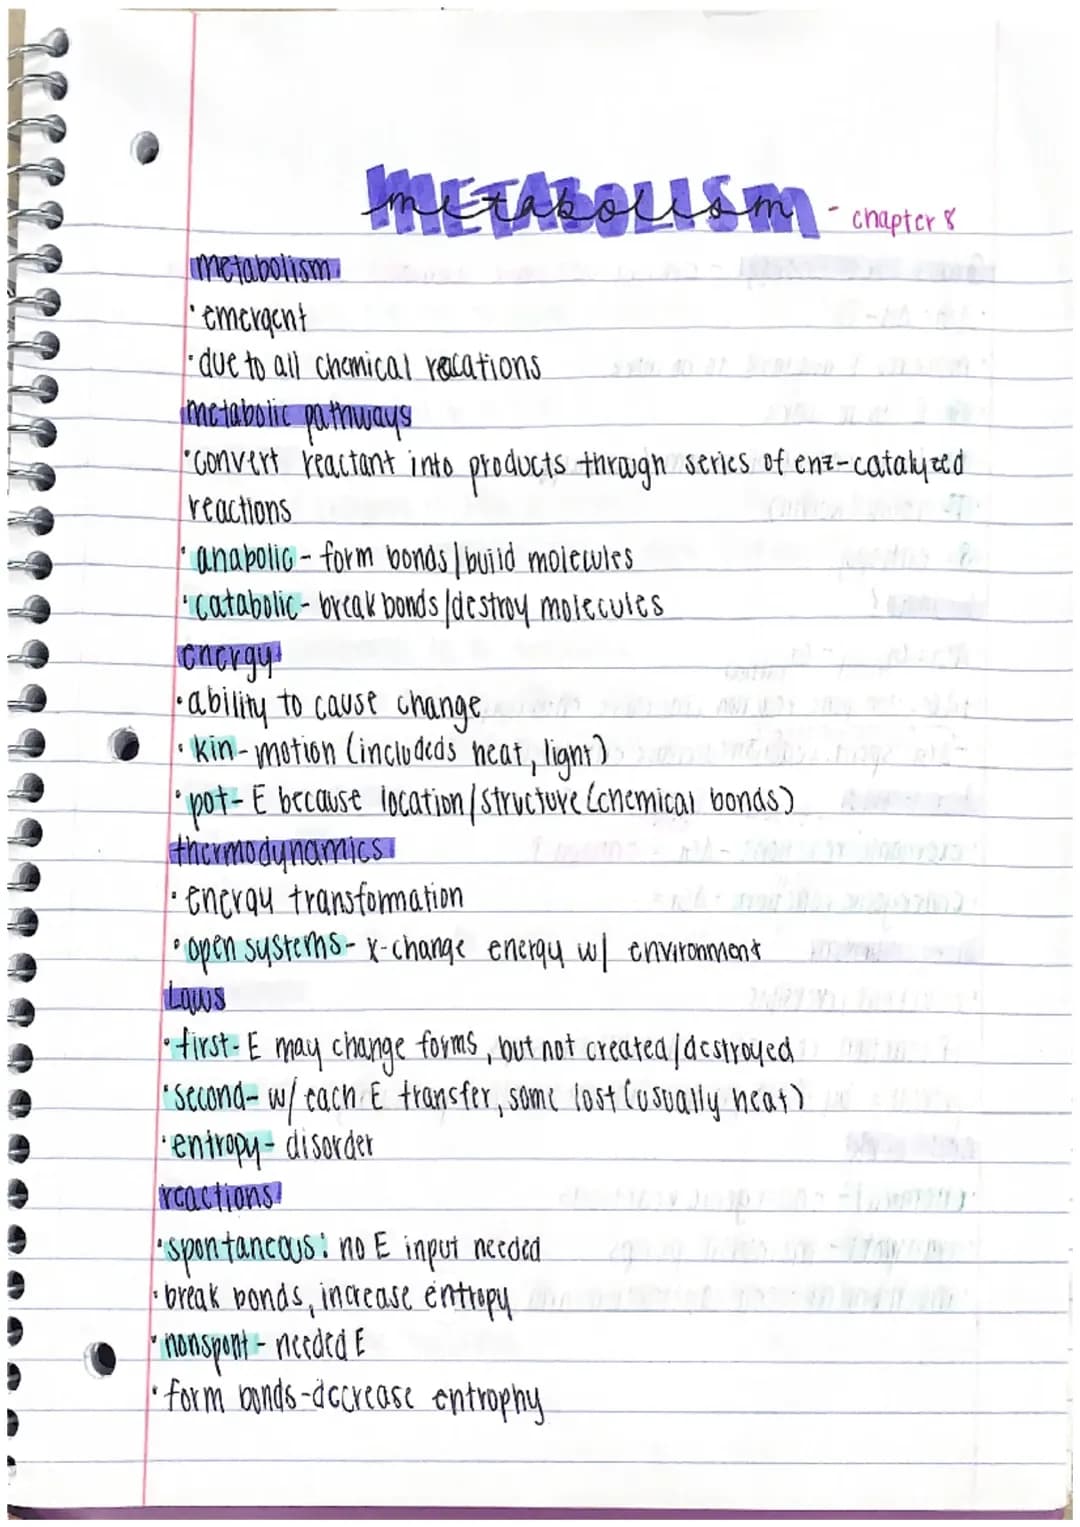 METABOLISM - chapter 8
metabolism
• emergent
• due to all chemical reacations
metabolic pathways
• convert reactant into products through series of enz-catalyzed
reactions
• anabolic - form bonds/build molecules
• catabolic - break bonds/destroy molecules
energy
• ability to cause change
• kin - motion (includeds heat, light)
• pot - E because location/structure (chemical bonds)
thermodynamics
• energy transformation
• open systems - x-change energy w/ environment
Laws
• first - E may change forms, but not created/destroyed
• second - w/ each E transfer, some lost (usually heat)
• entropy - disorder
reactions
• spontaneous: no E input needed
• break bonds, increase entropy
• nonspont - needed E
• form bonds - decrease entrophy